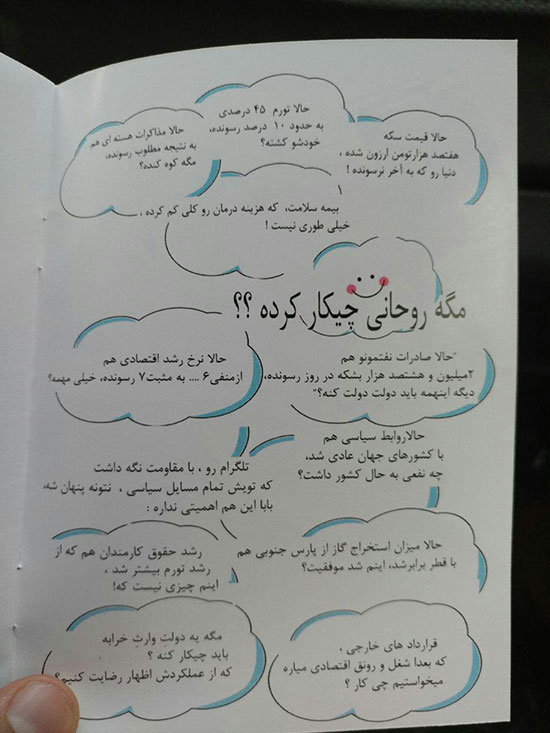 حالا قیمت سکه
هفتصد هزارتومن ارزون شده ،
دنیا رو که به آخر نرسونده !
حالا تورم ۴۵ درصدی
به حدود ۱۰ درصد رسونده،
خودشو کشته؟
حالا مذاکرات هسته ای هم
به نتیجه مطلوب رسونده،
مگه کوه کنده؟
بیمه سلامت، که هزینه درمان رو کلی کم کرده ،
خیلی طوری نیست !
مگه روحانی چیکار کرده ؟؟
"حالا صادرات نفتمونو هم
۲میلیون و هشتصد هزار بشکه در روز رسونده،
دیگه اینهمه باید دولت دولت کنه؟"
حالا نرخ رشد اقتصادی هم
ازمنفی۶ .... به مثبت۷ رسونده، خیلی مهمه؟
حالاروابط سیاسی هم
با کشورهای جهان عادی شد،
چه نفعی به حال کشور داشت؟
تلگرام رو ، با مقاومت نگه داشت
که تویش تمام مسایل سیاسی ، نتونه پنهان شه،
بابا این هم اهمیتی نداره :
حالا میزان استخراج گاز از پارس جنوبی هم
با قطر برابرشد، اینم شد موفقیت؟
رشد حقوق کارمندان هم که از
رشد تورم بیشتر شد ،
اینم چیزی نیست که!
قرارداد های خارجی ،
که بعدا شغل و رونق اقتصادی میاره
میخواستیم چی کار ؟
مگه یه دولتِ وارثِ خرابه
باید چیکار کنه ؟
که از عملکردش اظهار رضایت کنیم؟